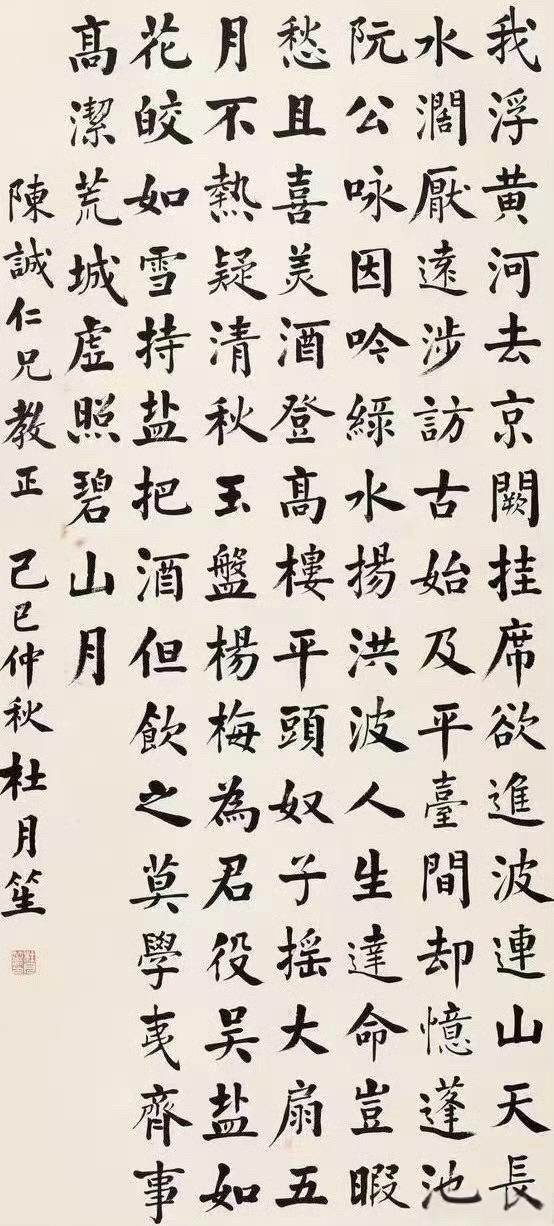 我浮黄河去京闕挂席欲進波連山天長
水濶厭遠涉訪古始及平臺間却憶蓬池
阮公咏因吟緑水揚洪波人生達命豈暇
愁且喜美酒登髙樓平頭奴子摇大扇五
月不熱疑清秋玉盤楊梅為君役吴盐如
花皎如雪持盐把酒但飲之莫學夷齊事
髙潔荒城虚照碧山月
陳誠仁兄教正 己巳仲秋杜月笙